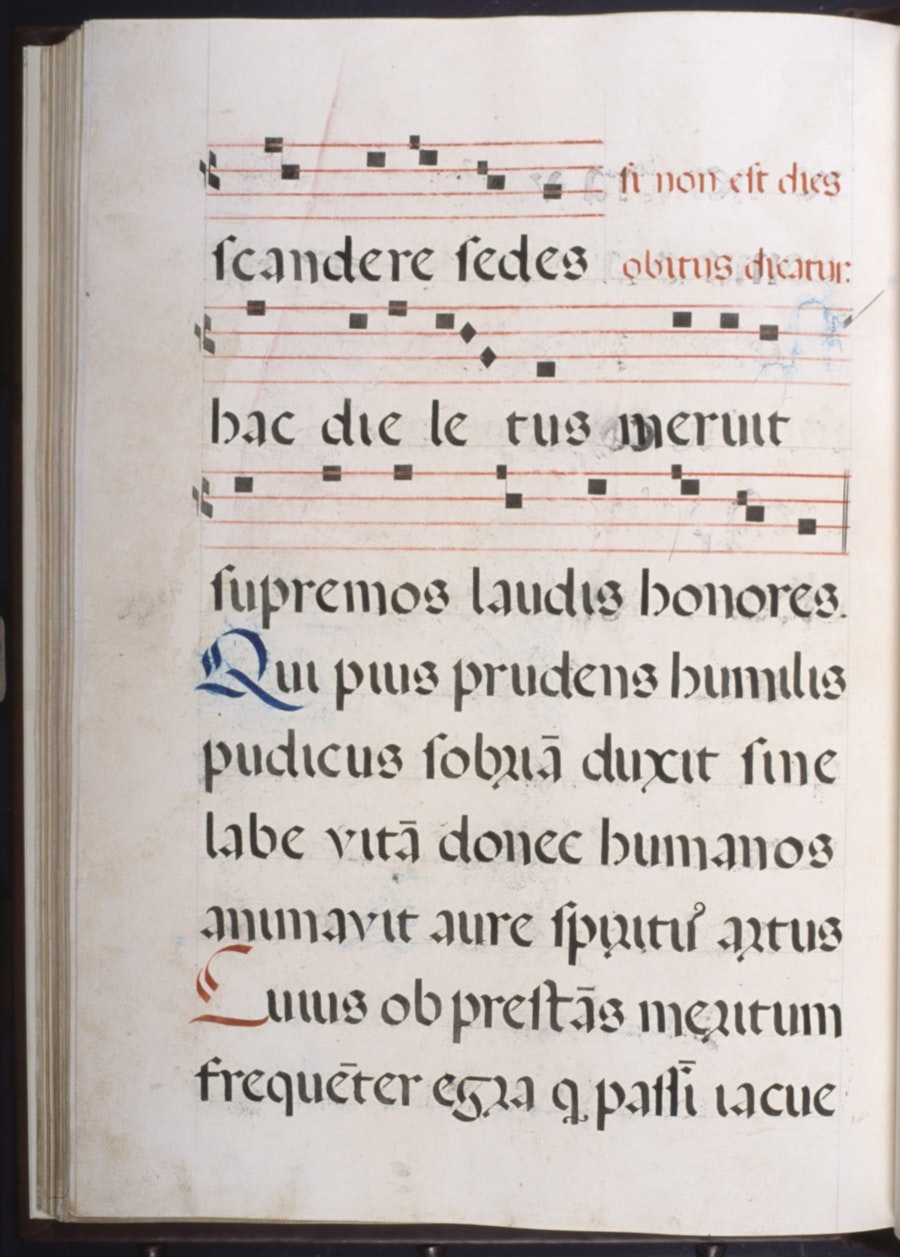 scandere sedes
si non est dies
obitus dicatur:
hac die letus meruit
supremos laudis honores.
Qui pius prudens humilis
pudicus sobriā duxit sine
labe vitā donec humanos
animavit aure spiritꝰ artus
Cuius ob prestās meritum
frequēter egra q passī iacue